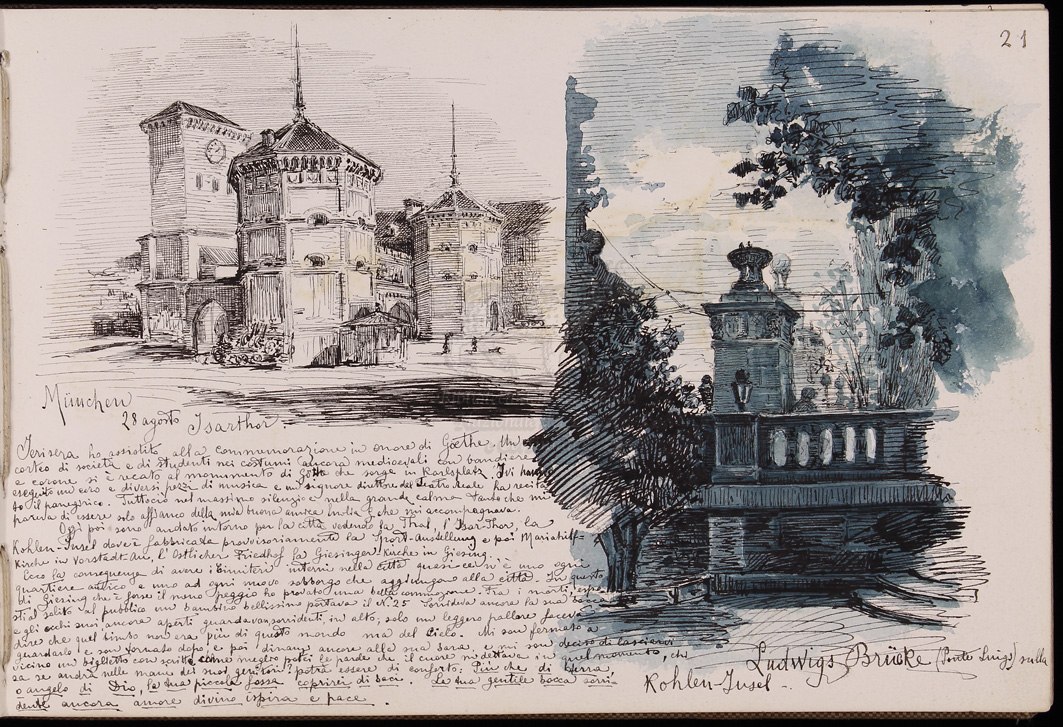 21
München
28 agosto Isarthor
Ierisera ho assistito alla commemorazione in onore di Goethe. Un
corteo di società e di studenti nei costumi ancora medioevali con bandiere
e corone si è recato al monumento di che sorge in Karlsplatz. Ivi hanno
eseguito un coro e diversi pezzi di musica e un signore direttore del teatro reale ha recita
to il panegirico. Tuttociò nel massimo silenzio e nella grande calma tanto che mi
pareva di essere solo della mia buona amica che mi accompagnava.
Oggi poi sono andato intorno per la città vedendo la Thal, l'Isar-Thor, la
Kohlen-Insel dov'è fabbricata provvisoriamente la Sport-Ausstellung e poi Mariahilf-
Kirche in Vorstadt Au, l'Ostlicher Friedhof la Giesinger Kirche in Giesing.
Ecco la conseguenza di avere i cimiteri interni nella città quasi ce n'è uno ogni
quartiere antico e uno ad ogni nuovo sobborgo che aggiunga alla città. In questo
di Giesing che è forse il meno peggio ho provato una bella commozione. Tra i morti, espo
sti al solito al pubblico un bambino bellissimo portava il N. 25 Sorrideva ancora la sua bocca
e gli occhi suoi ancora aperti guardavan, sorridenti, in alto; solo un leggero pallore faceva
dire che quel bimbo non era più di questo mondo ma del Cielo. Mi son fermato a
guardarlo e son tornato dopo, e poi dinanzi ancora alla sua bara, e mi son deciso di lasciarvi
vicino un biglietto con scritte come meglio potei le parole che il cuore mi dettava in quel momento, chi
sa se andrà nelle mani dei suoi genitori: potrà essere di conforto. Più che di terra
o angelo di Dio, la tua piccola fossa coprirei di baci. La tua gentile bocca sorri
dente ancora amore divino ispira e pace.
Ludwigs Brücke (Ponte Luigi) sulla
Kohlen-Insel.